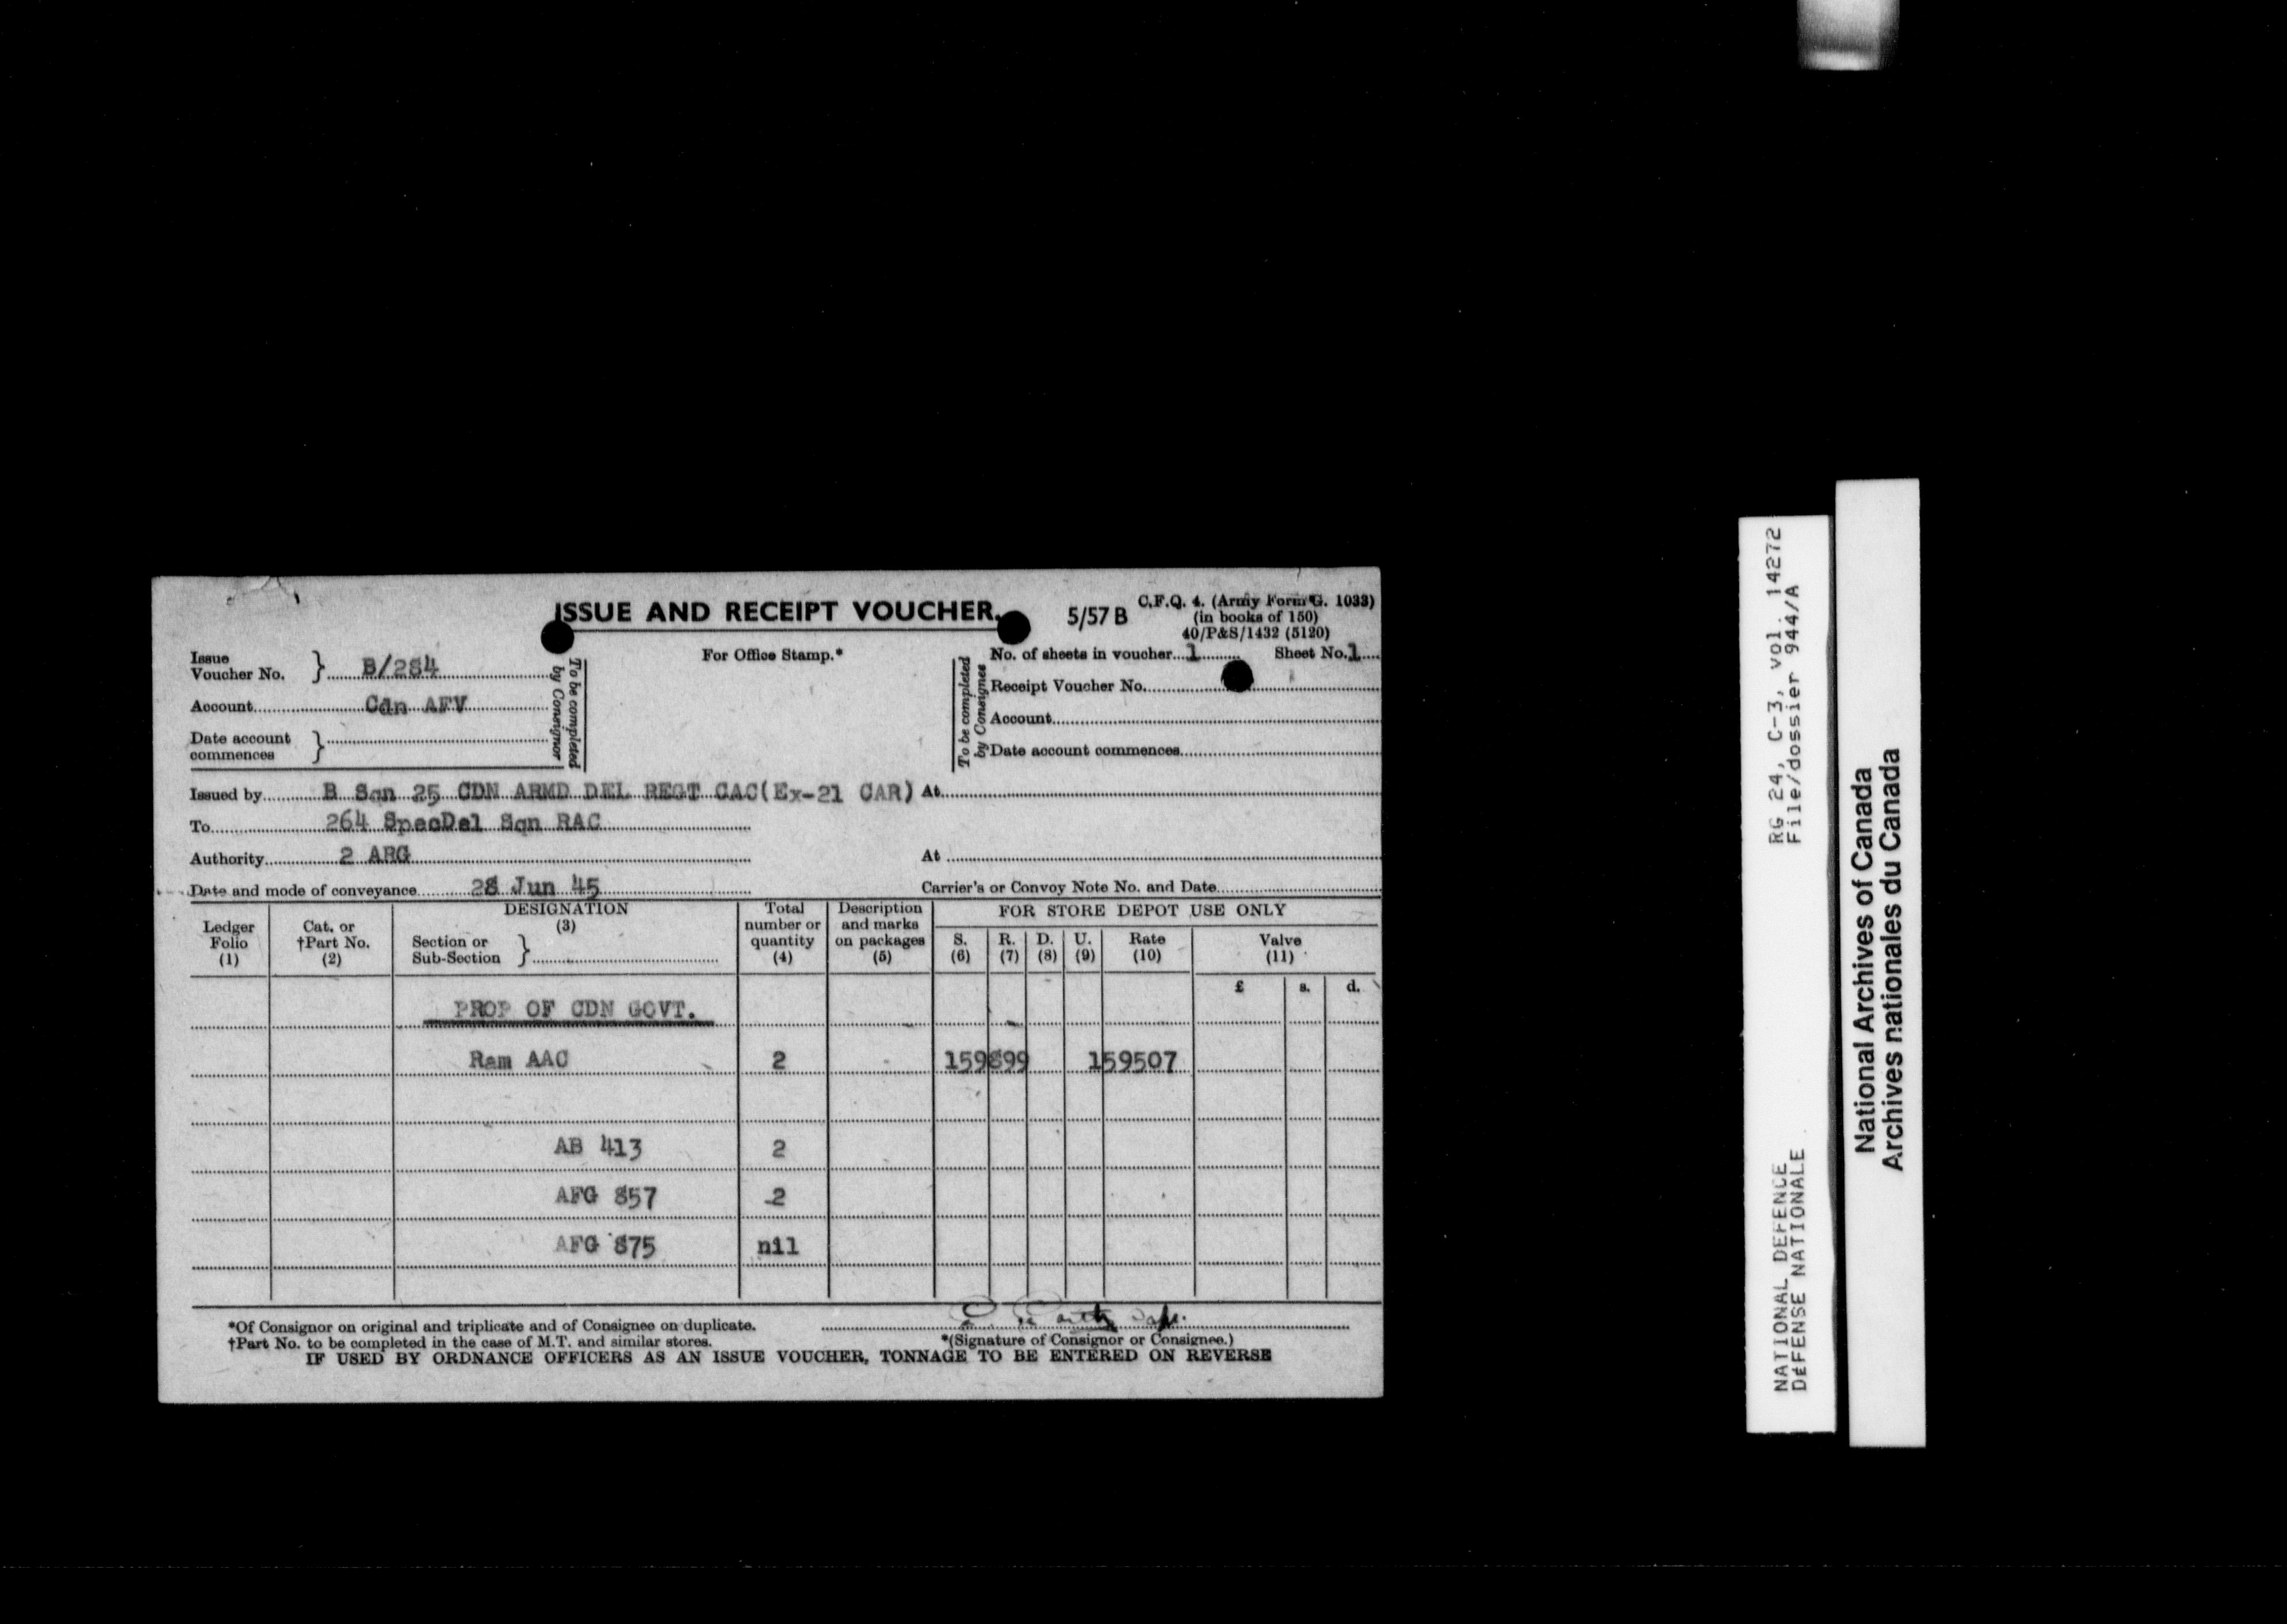 ISSUE AND RECEIPT VOUCHER.
5/57 B
C.F.Q. 4. (Army Form G. 1033)
(in books of 150)
40/P&S/1432 (5120)
Issue
Voucher No. } B/284
Account Cdn AFV
Date account
commences }
To be completed
by Consignor
For Office Stamp.*
To be completed
by Consignee
No. of sheets in voucher 1 Sheet No. 1
Receipt Voucher No.
Account
Date account commences
Issued by B Sqn 25 CDN ARMD DEL REGT CAC(Ex-21 CAR) At
To 264 SpecDel Sqn RAC
Authority 2 ARG At
Date and mode of conveyance 28 Jun 45 Carrier's or Convoy Note No. and Date
Ledger
Folio
(1)
Cat. or
†Part No.
(2)
DESIGNATION
(3)
Section or
Sub-Section }
Total
number or
quantity
(4)
Description
and marks
on packages
(5)
FOR STORE DEPOT USE ONLY
S.
(6)
R.
(7)
D.
(8)
U.
(9)
Rate
(10)
Valve
(11)
£ s. d.
PROP OF CDN GOVT.
Ram AAC 2 159899 159507
AB 413 2
AFG 857 2
AFG 875 nil
*Of Consignor on original and triplicate and of Consignee on duplicate.
†Part No. to be completed in the case of M.T. and similar stores.
*(Signature of Consignor or Consignee.)
IF USED BY ORDNANCE OFFICERS AS AN ISSUE VOUCHER, TONNAGE TO BE ENTERED ON REVERSE
NATIONAL DEFENCE RG 24, C-3, vol. 14272
DéFENSE NATIONALE File/dossier 944/A
National Archives of Canada
Archives nationales du Canada